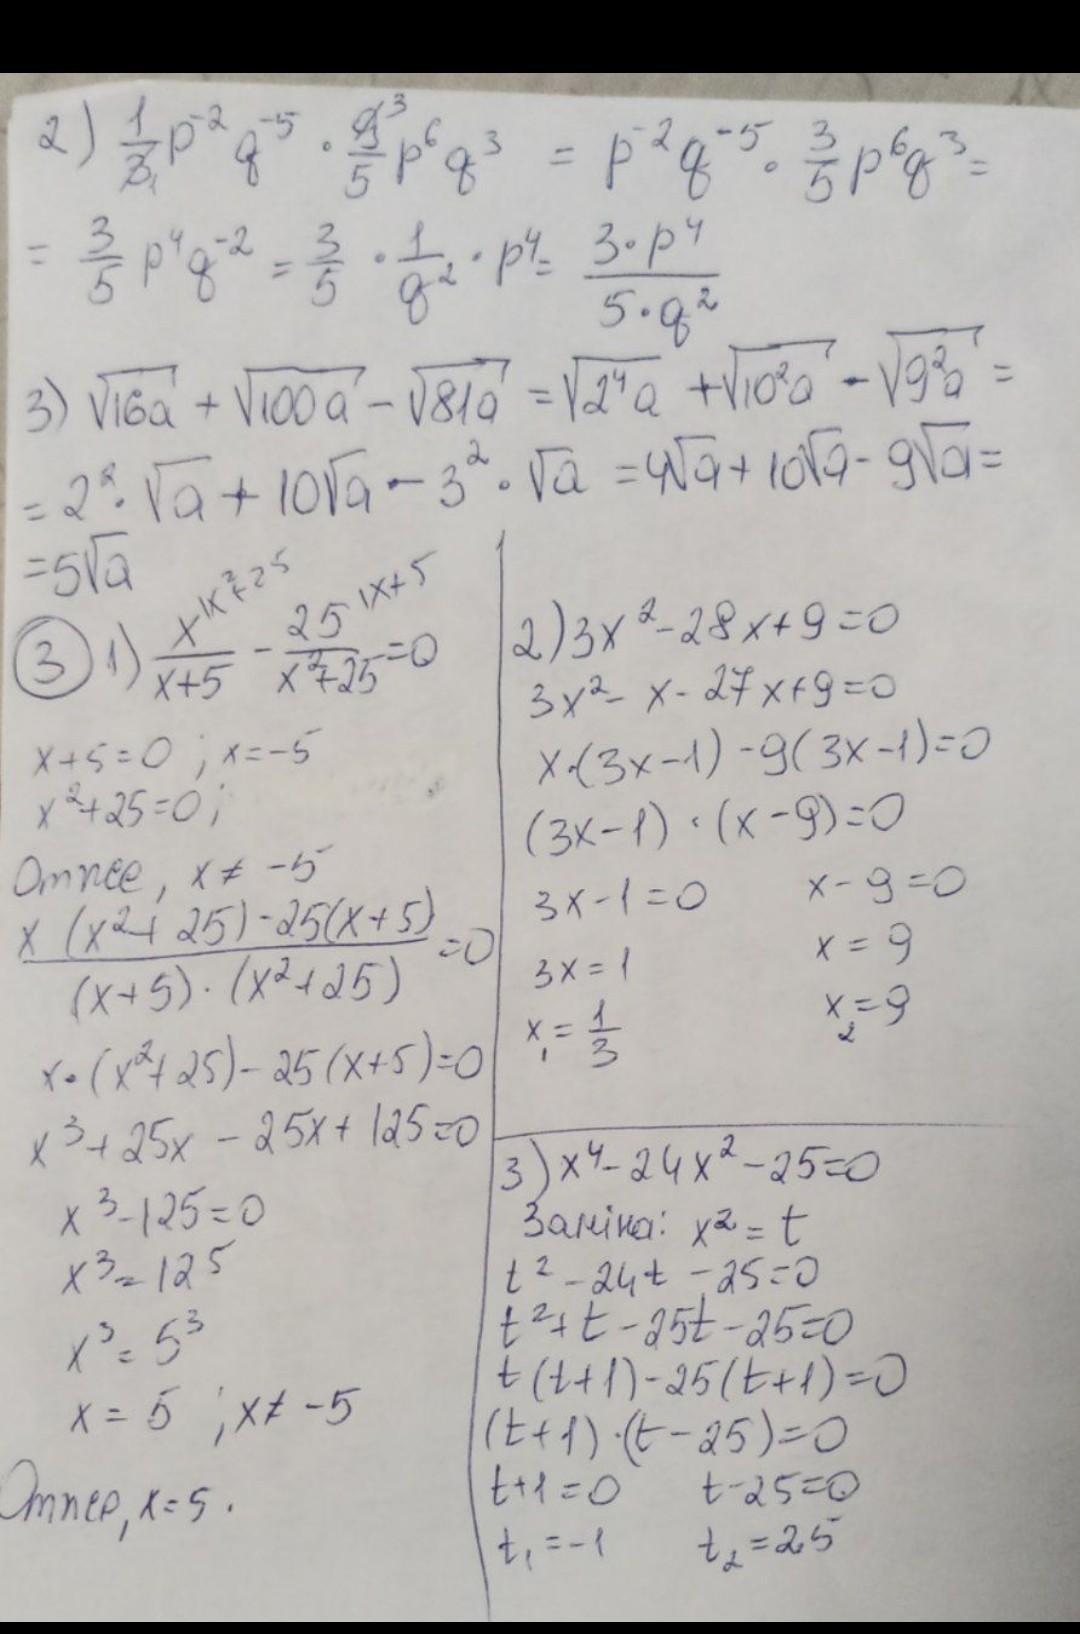 2) 1/3₁ p⁻² q⁻⁵ · 9³/5 p⁶ q³ = p⁻² q⁻⁵ · 3/5 p⁶ q³ =
= 3/5 p⁴ q⁻² = 3/5 · 1/q² · p⁴ = 3·p⁴/5·q²
3) √16a + √100a - √81a = √2⁴a + √10²a - √9²a =
= 2² · √a + 10√a - 3² · √a = 4√a + 10√a - 9√a =
= 5√a
③ 1) x^{\x²+25}/x+5 - 25^{\x+5}/x²+25 = 0
x+5=0 ; x=-5
x²+25=0;
Отже, x ≠ -5
x (x²+25) - 25(x+5)/(x+5)·(x²+25) = 0
x·(x²+25) - 25(x+5)=0
x³+25x - 25x + 125=0
x³-125=0
x³=125
x³=5³
x = 5 ; x ≠ -5
x=5.
2) 3x²-28x+9=0
3x²- x - 27x+9=0
x·(3x-1) - 9(3x-1)=0
(3x-1) · (x-9)=0
3x-1=0 x-9=0
3x=1 x = 9
x₁ = 1/3 x₂=9
3) x⁴-24x²-25=0
Заміна: x² = t
t² - 24t - 25=0
t²+t-25t-25=0
t(t+1)-25(t+1)=0
(t+1)·(t-25)=0
t+1=0 t-25=0
t₁=-1 t₂=25